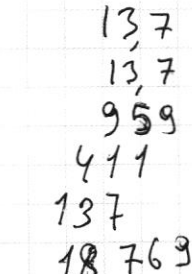 13,7
13,7
959
411
137
18 769